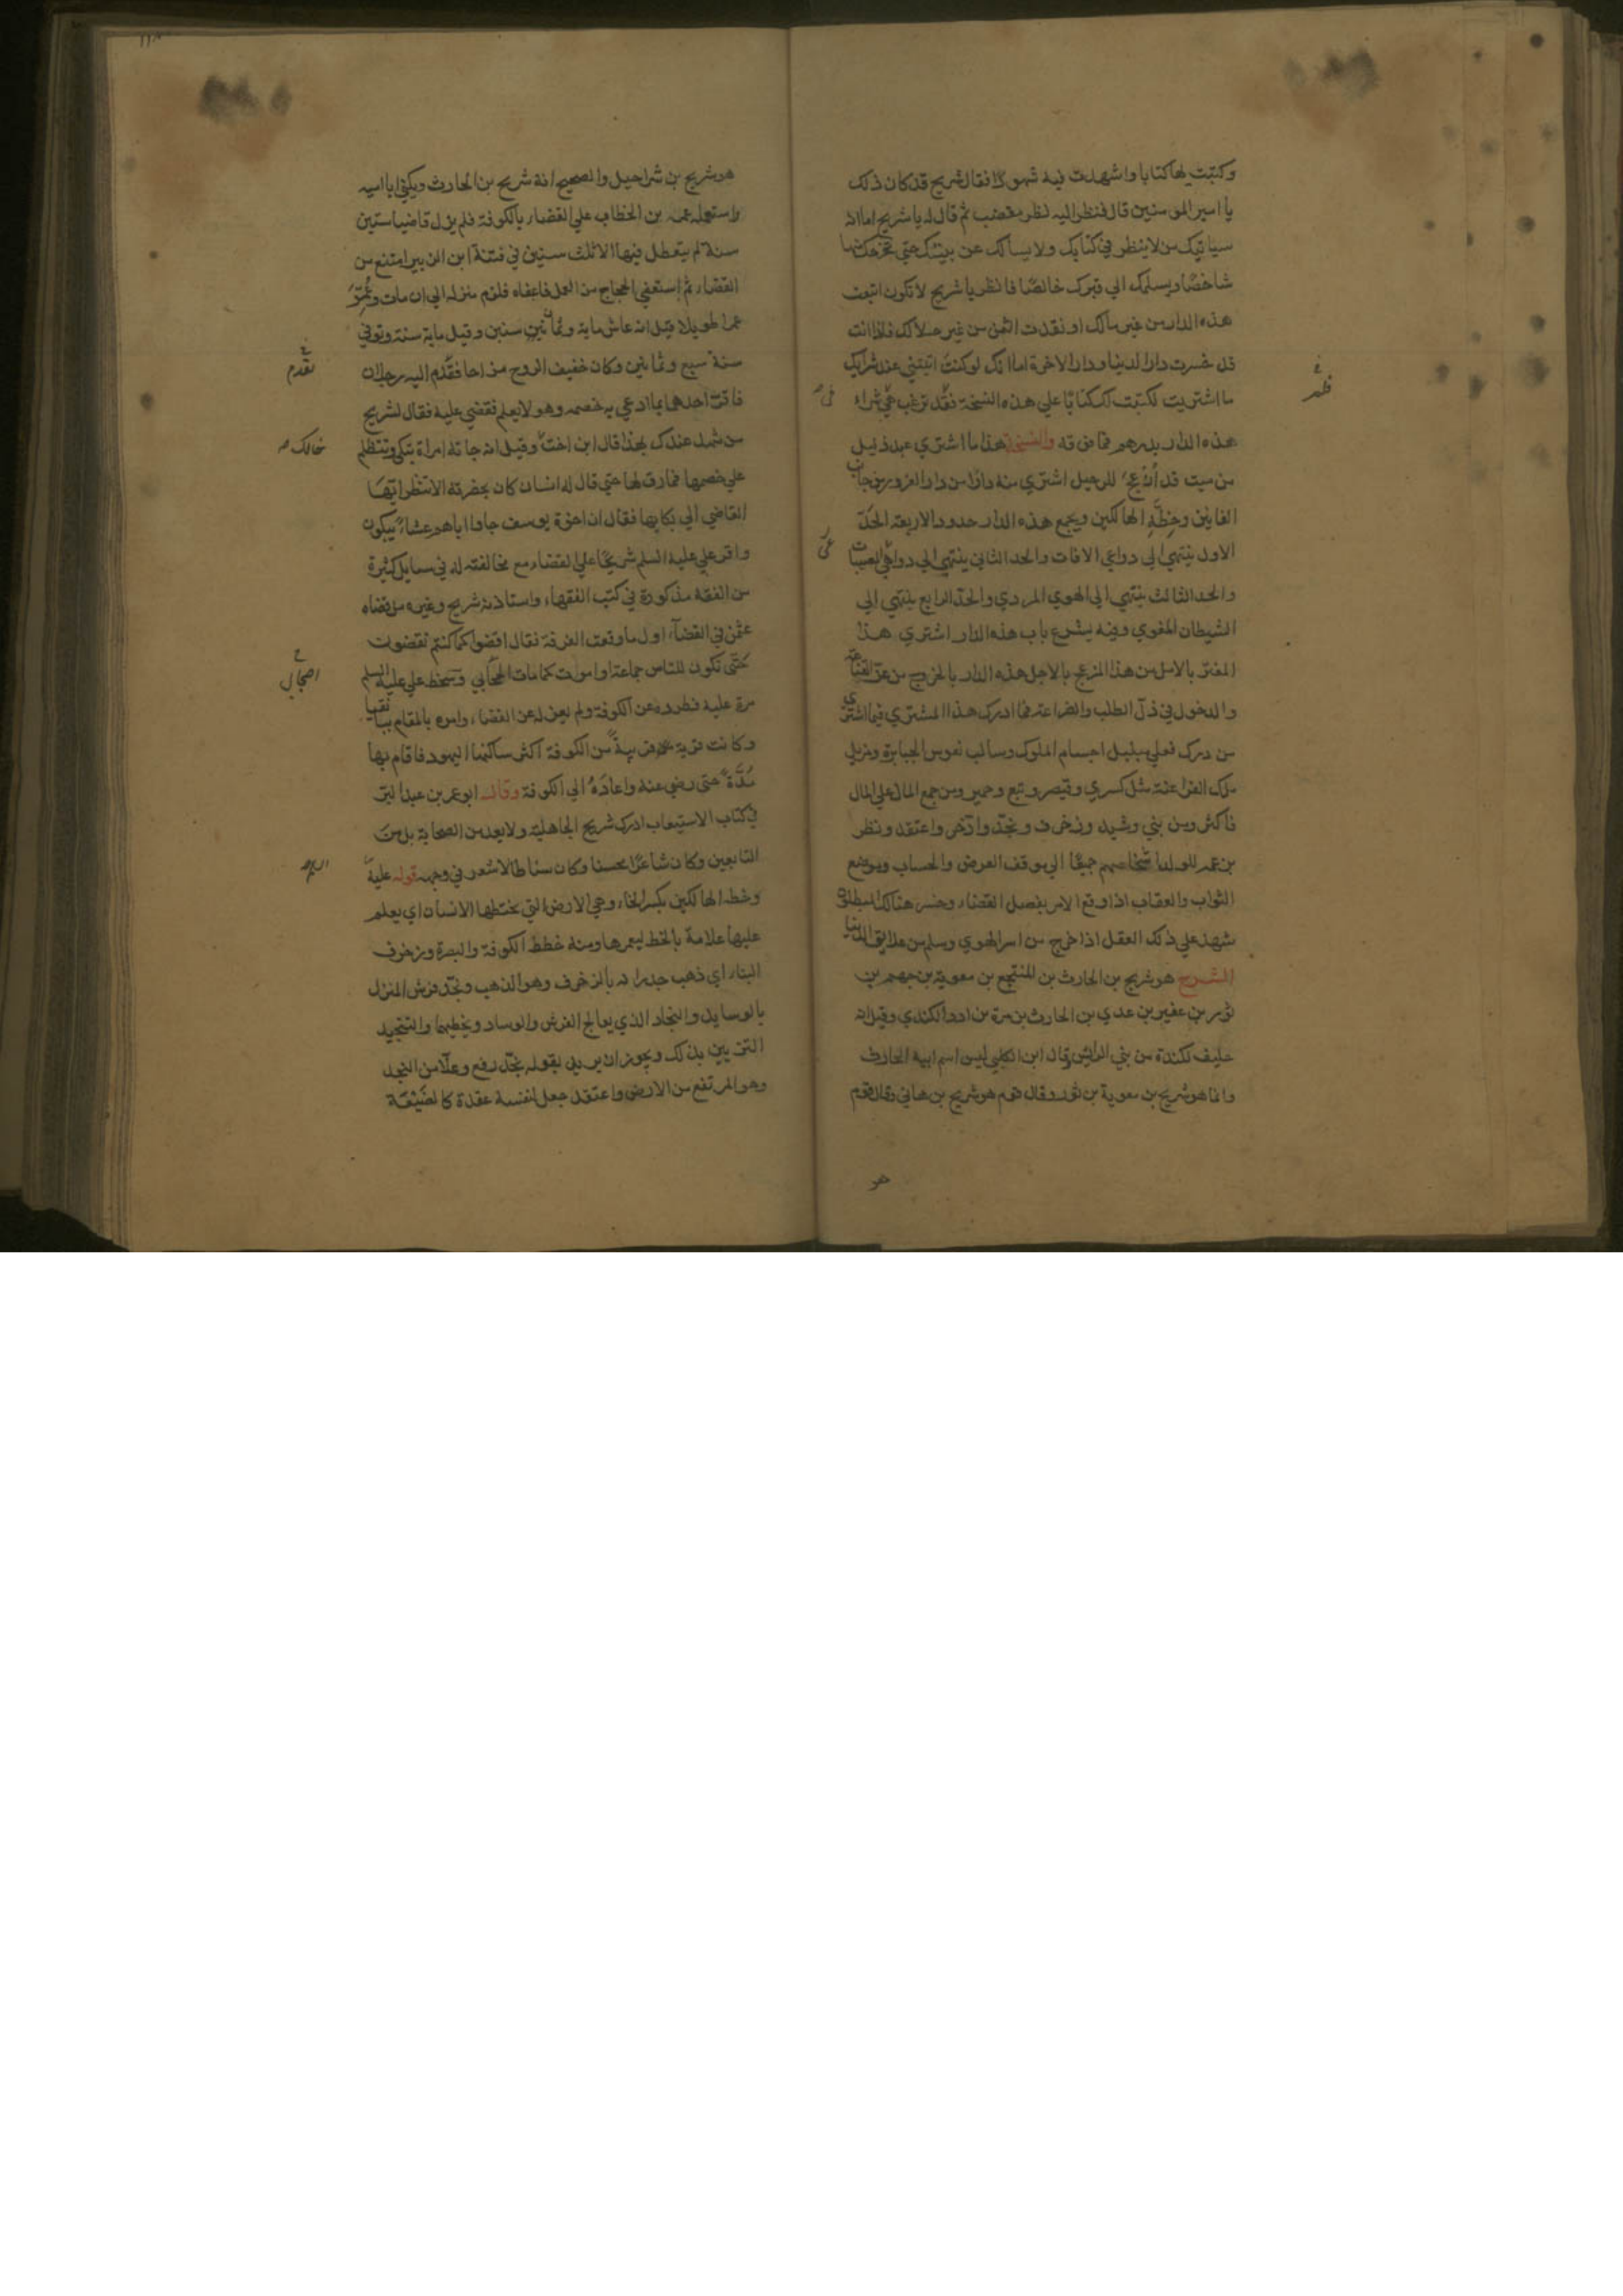 وكتبت لها كتابا واشهدت فيه شهودا فقال شريح قد كان ذلك
يا امير المومنين قال فنظر اليه نظر مغضب ثم قال له يا شريح اما انه
سياتيك من لا ينظر في كتابك ولا يسالك عن بينتك حتى يخرجك منها
شاخصا ويسلمك الي قبرك خالصا فانظر يا شريح لا تكون ابتعت
هذه الدار من غير مالك او نقدت الثمن من غير حلالك فاذا انت
قد خسرت دار الدنيا ودار الاخرة اما انك لو كنت اتيتني عند شرايك
ما اشتريت لكتبت لك كتابا علي هذه النسخة فلم ترغب في شراء
هذه الدار بدرهم فما فوقه والنسخة هذا ما اشتري عبد ذليل
من ميت قد أزعج للرحيل اشتري منه دارا من دار الغرور من جانب
الفانين وخطة الهالكين ويجمع هذه الدار حدود الاربعة الحد
الاول ينتهي الي دواعي الافات والحد الثاني ينتهي الي دواعي المصيبات
والحد الثالث ينتهي الي الهوي المردي والحد الرابع ينتهي الي
الشيطان المغوي وفيه يشرع باب هذه الدار اشتري هذا
المغتر بالامل من هذا المزعج بالاجل هذه الدار بالخروج من عز القناعة
والدخول في ذل الطلب والضراعة فما ادرك هذا المشتري فيما اشتري
من درك فعلي مبلبل اجسام الملوك وسالب نفوس الجبابرة ومزيل
ملك الفراعنة مثل كسري وقيصر وتبع وحمير ومن جمع المال علي المال
فاكثر ومن بني وشيد وزخرف ونجد وادخر واعتقد ونظر
بزعمه للولد اشخاصهم جميعا الي موقف العرض والحساب وموضع
الثواب والعقاب اذا وقع الامر بفصل القضاء وخسر هنالك المبطلون
شهد علي ذلك العقل اذا خرج من اسر الهوي وسلم من علايق الدنيا
الشرح هو شريح بن الحارث بن المنتجع بن معوية بن جهم بن
ثور بن عفير بن عدي بن الحارث بن مرة بن ادد الكندي وقيل انه
حليف لكندة من بني الرائش وقال ابن الكلبي ليس اسم ابيه الحارث
وانما هو شريح بن معوية بن ثور وقال قوم هو شريح بن هاني وقال قوم
هو
هو شريح بن شراحيل والصحيح انه شريح بن الحارث ويكني ابا امية
استعمله عمر بن الخطاب علي القضاء بالكوفة فلم يزل قاضيا ستين
سنة لم يتعطل فيها الا ثلث سنين في فتنة ابن الزبير امتنع من
القضاء ثم استعفي الحجاج من العمل فاعفاه فلزم منزله الي ان مات وعُمِّر
عمرا طويلا قيل انه عاش ماية وثمانين سنين وقيل ماية سنة وتوفي
سنة سبع وثمانين وكان خفيف الروح مزاحا فقدم اليه رجلان
تقدم
فاقر احدهما بما ادعي به خصمه وهو لا يعلم فقضي عليه فقال لشريح
من شهد عندك بهذا قال ابن اخت وقيل انه جاته امراة تبكي وتتظلم
خالك
علي خصمها فما رق لها حتي قال له انسان كان بحضرته الا تنظر ايها
القاضي الي بكايها فقال ان اخوة يوسف جاوا اباهم عشاء يبكون
واقر علي عليه السلم شريحا علي القضاء مع مخالفته له في مسايل كثيرة
من الفقه مذكورة في كتب الفقهاء واستاذنه شريح وغيره من قضاة
عثمن في القضاء اول ما وقعت الفرقة فقال اقضوا كما كنتم تقضون
حتى تكون للناس جماعة او اموت كما مات اصحابي وسخط علي عليه السلم
اصحابي
مرة عليه فطرده عن الكوفة ولم يعزله عن القضاء وامره بالمقام ببانقيا
وكانت قرية قريبة من الكوفة اكثر ساكنها اليهود فاقام بها
مُدَّةً حتى رضي عنه واعادَهُ الي الكوفة وقال ابو عمر بن عبد البر
في كتاب الاستيعاب ادرك شريح الجاهلية ولا يعد من الصحابة بل من
التابعين وكان شاعرا محسنا وكان سناطا لا شعر في وجهه قوله عليه
وخطه الهالكين بكسر الخاء وهي الارض التي يختطها الانسان اي يعلم
عليها علامة بالخط ليعمرها ومنه خطط الكوفة والبصرة وزخرف
البناء اي ذهب جدرانه بالزخرف وهو الذهب ونجد فرش المنزل
بالوسايد والنجاد الذي يعالج الفرش والوساد ويخيطها والتنجيد
التزيين بذلك ويجوز ان يريد بقوله نجد رفع وعلا من النجد
وهو المرتفع من الارض واعتقد جعل لنفسه عقدة كالضيعة